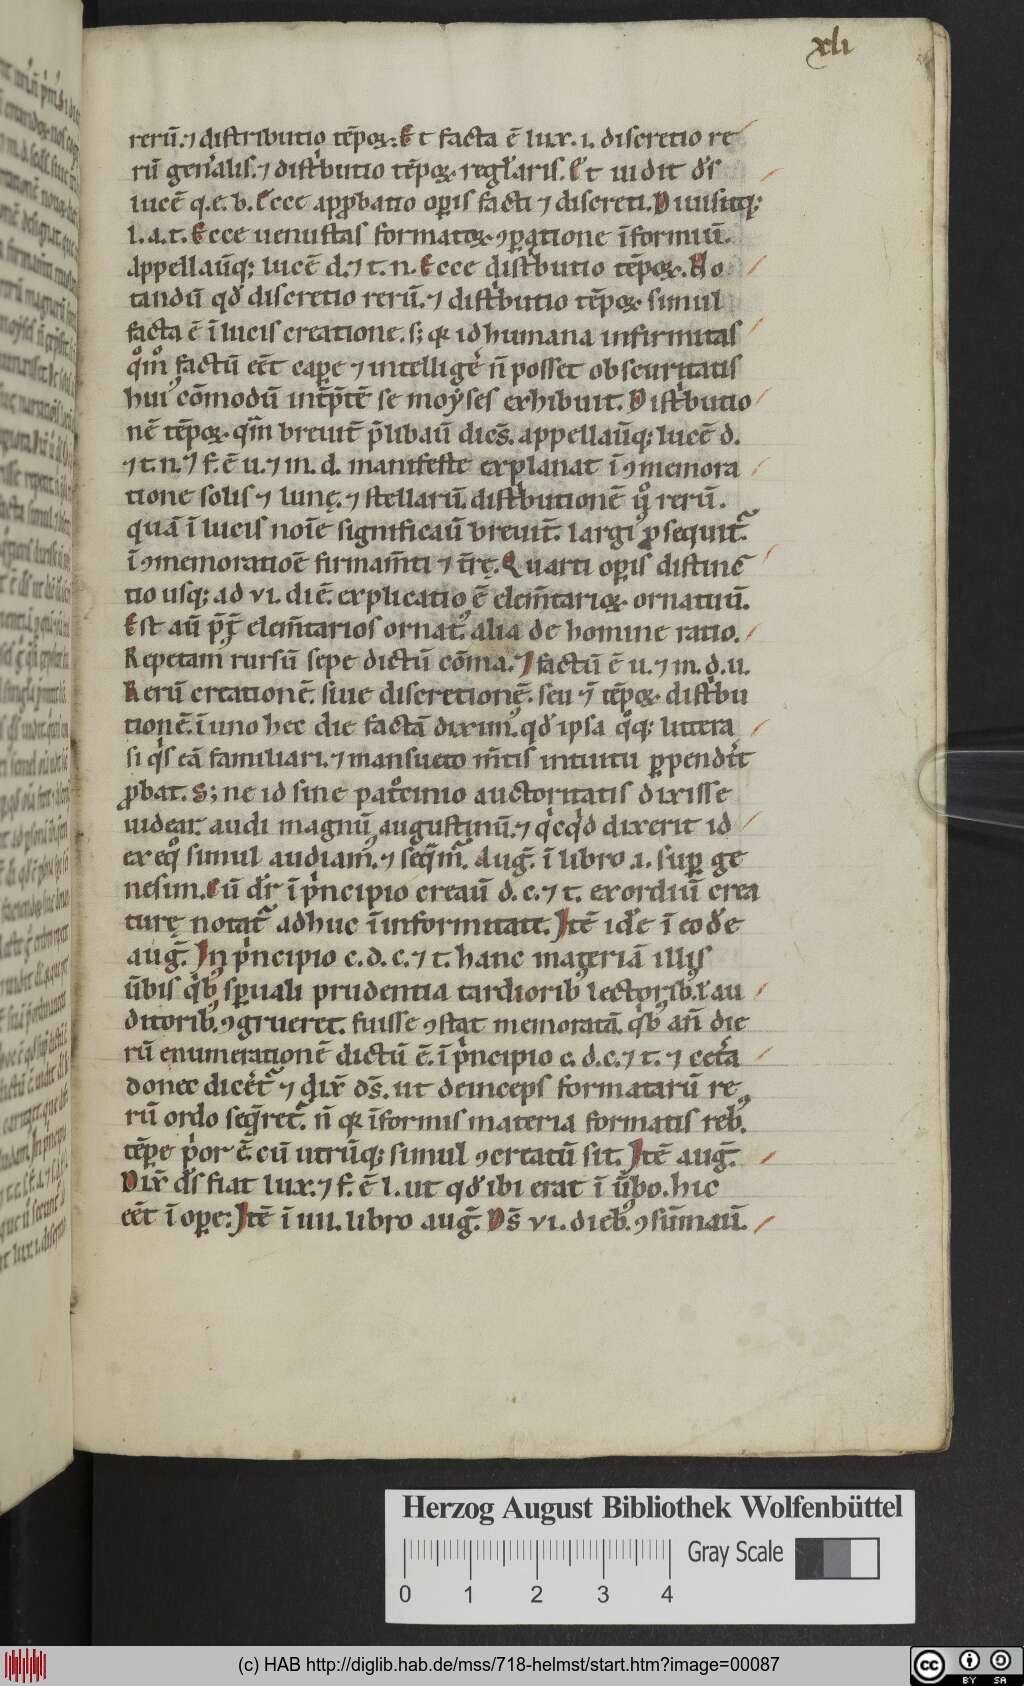 xli
rerū. ⁊ distributio tēpoꝝ. Et facta ē lux. i. discretio re
rū gen̄alis. ⁊ distͥbutio tēpoꝝ regl̓aris. Et uidit d̓s
lucē q. e. b. Ecce app̱batio opis facti ⁊ discreti. Diuisitq;
l. a. t. Ecce uenustas formatoꝝ ꝯꝑatione īformiū.
Appellauq̄; lucē d. ⁊ t. n. Ecce distͥbutio tēpoꝝ. No
tandū qd̓ discretio rerū. ⁊ distͥbutio tēpoꝝ simul
facta ē ī lucis creatione. s; qꝛ id humana infirmitas
qͦmͦ factū eēt caꝑe ⁊ intelligē n̄ posset obscuritatis
huiꝰ cōmodū int̄p̄tē se moyses exhibuit. Distͥbutio
nē tēpoꝝ. qm̄ breuit̄ p̄libau dies̄. appellauq̄; lucē d.
⁊ t. n. ⁊ f. ē u. ⁊ m. d. manifeste explanat ī ꝯmemora
tione solis ⁊ lunę. ⁊ stellarū. distͥbutionē ū rerū.
quā ī lucis noīe significau breuit̄. largiꝰ ꝓsequit᷑
ī ꝯmemoratiōē firmam̄ti ⁊ t̄rę. Quarti opis distinc
tio usq; ad vi. diē. explicatio ē elem̄tarioꝝ ornatuū.
Est aū p̄t̄ elem̄tarios ornatꝰ. alia de homine ratio.
Repetamꝰ rursū sepe dictū cōma. ⁊ factū ē u. ⁊ m. d. u.
Rerū creationē. siue discretionē. seu ⁊ tēpoꝝ distͥbu
tionē. ī uno hec die factā diximꝰ. qd̓ ipsa qͦq; littera
si qͥs eā familiari. ⁊ mansueto m̄tis intuitu ꝑpendit̓
ꝓbat. S; ne id sine patͦcinio auctoritatis dixisse
uidear. audi magnū augustinū. ⁊ qͥcqͥd dixerit id
ex eqͦ simul audiamꝰ. ⁊ seq̄mᷓ. Auḡ. ī libro .i. suꝑ ge
nesim. Cū d̓r ī pͥncipio creau d. c. ⁊ t. exordiū crea
turę notat᷑ adhuc ī informitate. Itē idē ī eodē
auḡ. In pͥncipio c. d. c. ⁊ t. hanc materiā illis
ūbis qͥbꝰ sꝑuali prudentia tardioribꝰ lectoribꝰ. l̓ au
ditoribꝰ. ꝯgrueret. fuisse ꝯstat memoratā. qͥbꝰ an̄ die
rū enumerationē dictū ē. ī pͥncipio c. d. c. ⁊ t. ⁊ cet̓a
donec dicet᷑ ⁊ dix̄ d̄s. ut deinceps formatarū re
rū ordo seq̄ret᷑. n̄ qꝛ īformis materia formatis rebꝰ.
tēpe pͥor ē. cū utrūq; simul ꝯcreatū sit. Itē auḡ.
Dix̄ d̄s fiat lux. ⁊ f. ē l. ut qd̓ ibi erat ī ūbo. hic
eēt ī ope: Itē ī iiii. libro auḡ. D̄s vi. diebꝰ. ꝯsūmau.
Herzog August Bibliothek Wolfenbüttel
Gray Scale
0 1 2 3 4
(c) HAB http://diglib.hab.de/mss/718-helmst/start.htm?image=00087
cc BY SA